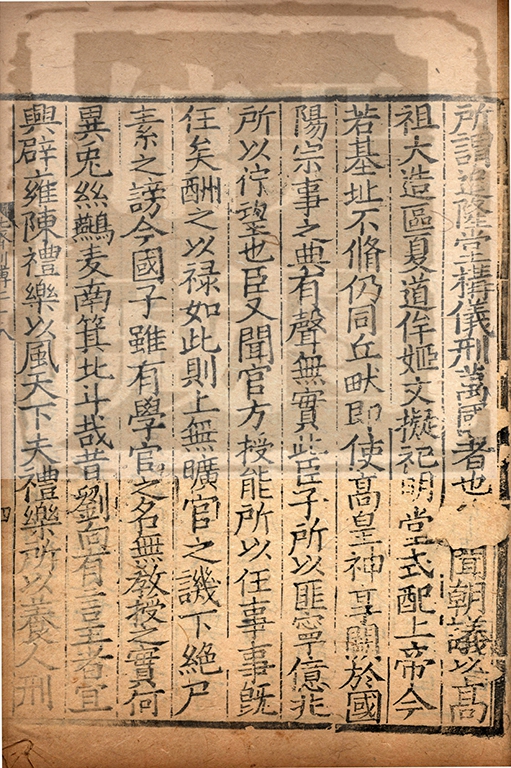 所謂追隆堂構儀刑萬國者也聞朝議以髙
祖大造區夏道侔姬文擬祀明堂式配上帝今
若基址不脩仍同丘畎即使髙皇神享闕於國
陽宗事之典有聲無實此臣子所以匪寧億兆
所以佇望也臣又聞官方授能所以任事事旣
任矣酬之以禄如此則上無曠官之譏下絶尸
素之謗今國子雖有學官之名無敎授之實何
異兎絲鷰麦南箕北斗哉昔劉向有言王者宜
興辟雍陳禮樂以風天下夫禮樂所以養人刑
四